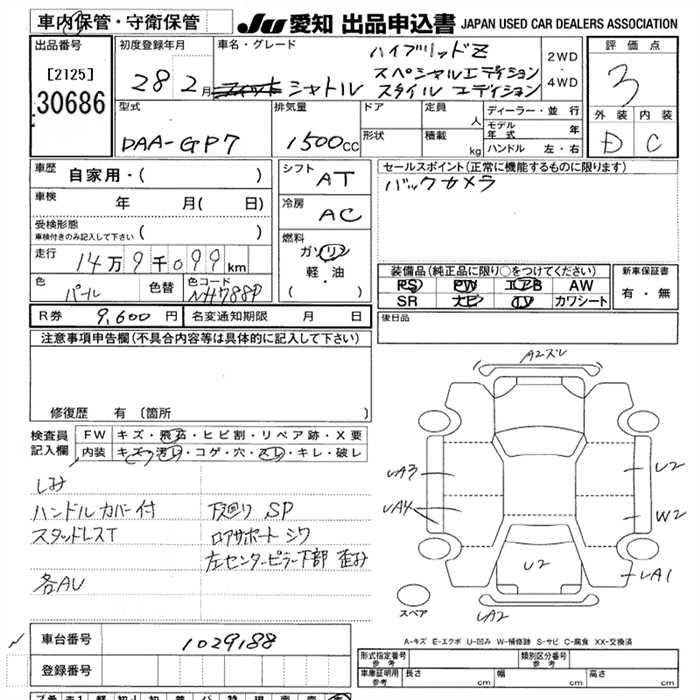 車内保管・守衛保管 JU 愛知 出品申込書 JAPAN USED CAR DEALERS ASSOCIATION
出品番号 初度登録年月 車名・グレード ハイブリッドZ 2WD・4WD 評価点
[2125] 28年2月 シャトル スペシャルエディション 3
30686 スタイル エディション 外装 内装
型式 排気量 ドア 定員 人 ディーラー・並行 D C
DAA-GP7 1500cc 形状 積載 kg モデル年式 年
ハンドル 左・右
車歴 自家用・( ) シフト AT セールスポイント(正常に機能するものに限ります)
車検 年 月( 日) 冷房 AC バックカメラ
受検形態 車検付きのみ記入して下さい ( )
燃料 ガソリン 軽・油 ( )
走行 14万9千099km 装備品(純正品に限り○をつけてください) 新車保証書
色 パール 色替 色コード NH788P PS PW エアB AW 有・無
SR ナビ TV カワシート
R券 9,600円 名変通知期限 月 日 後日品
注意事項申告欄(不具合内容等は具体的に記入して下さい)
A2ズレ
修復歴 有(箇所 )
検査員記入欄 FW キズ・飛石・ヒビ割・リペア跡・X要
内装 キズ・汚レ・コゲ・穴・スレ・キレ・破レ
しみ
ハンドルカバー付 下廻り SP
スタッドレスT ロアサポート シワ
左センターピラー下部 歪み
各AU
A3 U2
A4 W2
U2 A1
スペア A2
A-キズ E-エクボ U-凹み W-補修跡 S-サビ C-腐食 XX-交換済
車台番号 1029188
登録番号
形式指定番号 参考 類別区分番号 参考
車庫証明用 参考 長さ cm 幅 cm 高さ cm